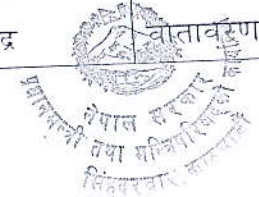 द्र
वातावरण
नेपाल सरकार
प्रधानमन्त्री तथा मन्त्रिपरिषद्को
सिंहदरबार, काठमाडौं